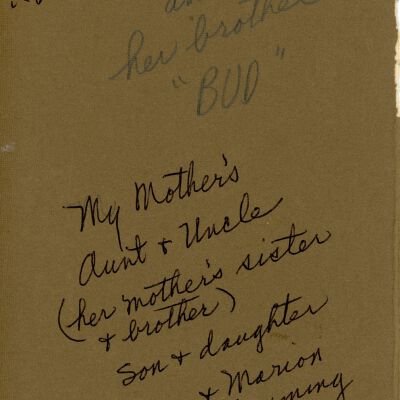 her brother
"BUD"
My Mother's
Aunt + Uncle
(her mother's sister
+ brother)
Son + daughter
+ Marion